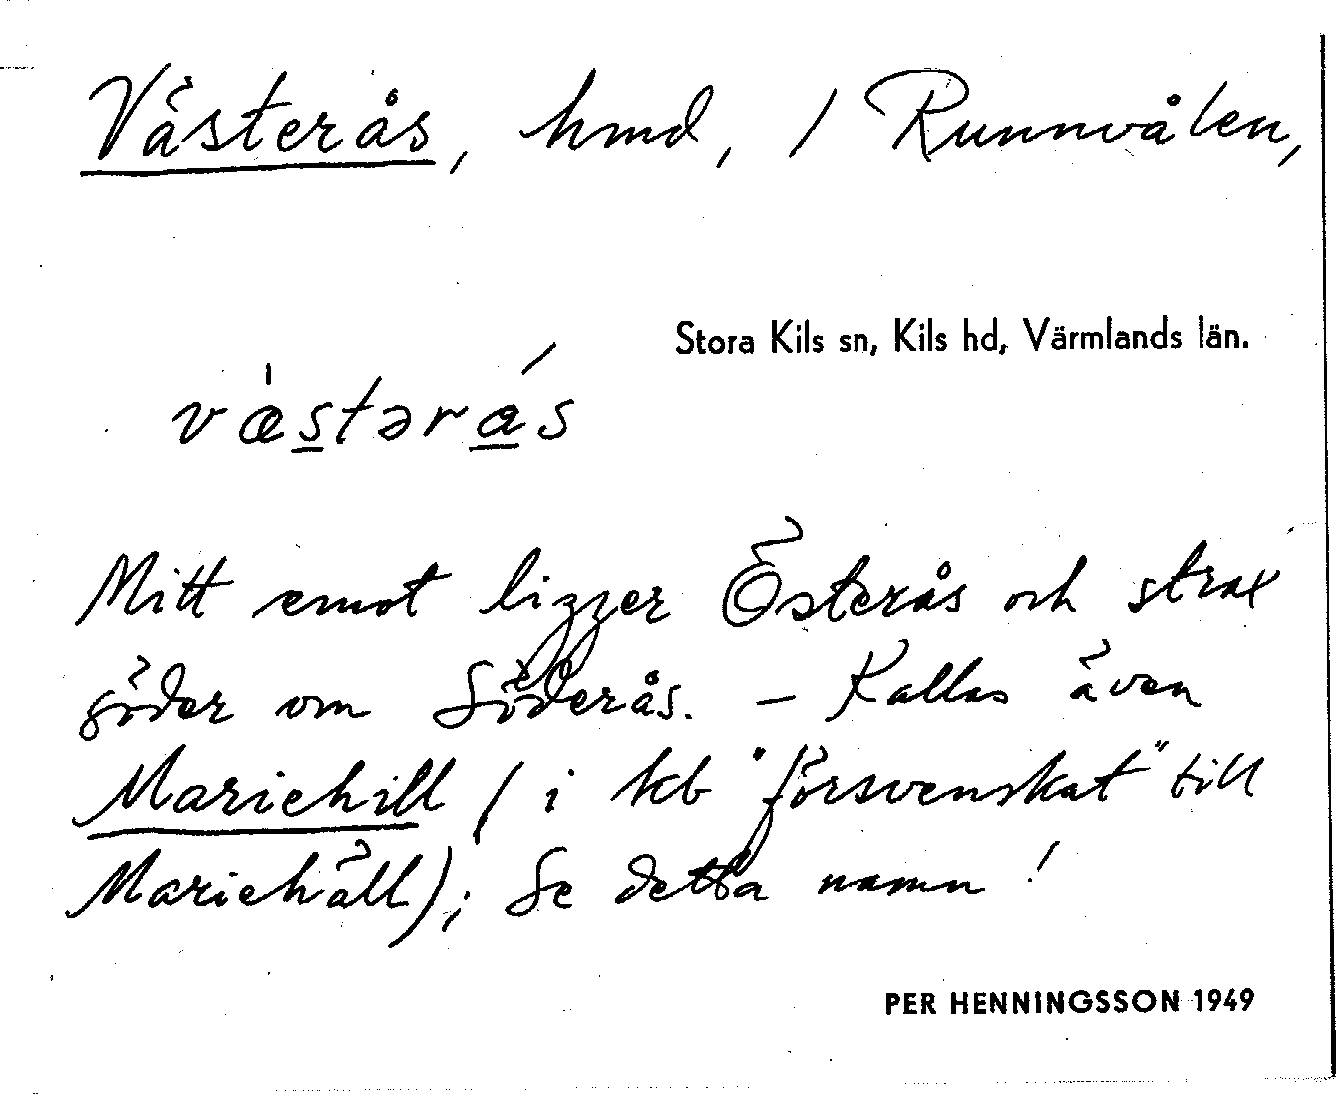 Västerås, hmd, / Runnvålen,
Stora Kils sn, Kils hd, Värmlands län.
væ̀stərás
Mitt emot ligger Österås och strax
söder om Söderås. – Kallas även
Mariehill (i kb "försvenskat" till
Mariehäll); Se detta namn!
PER HENNINGSSON 1949